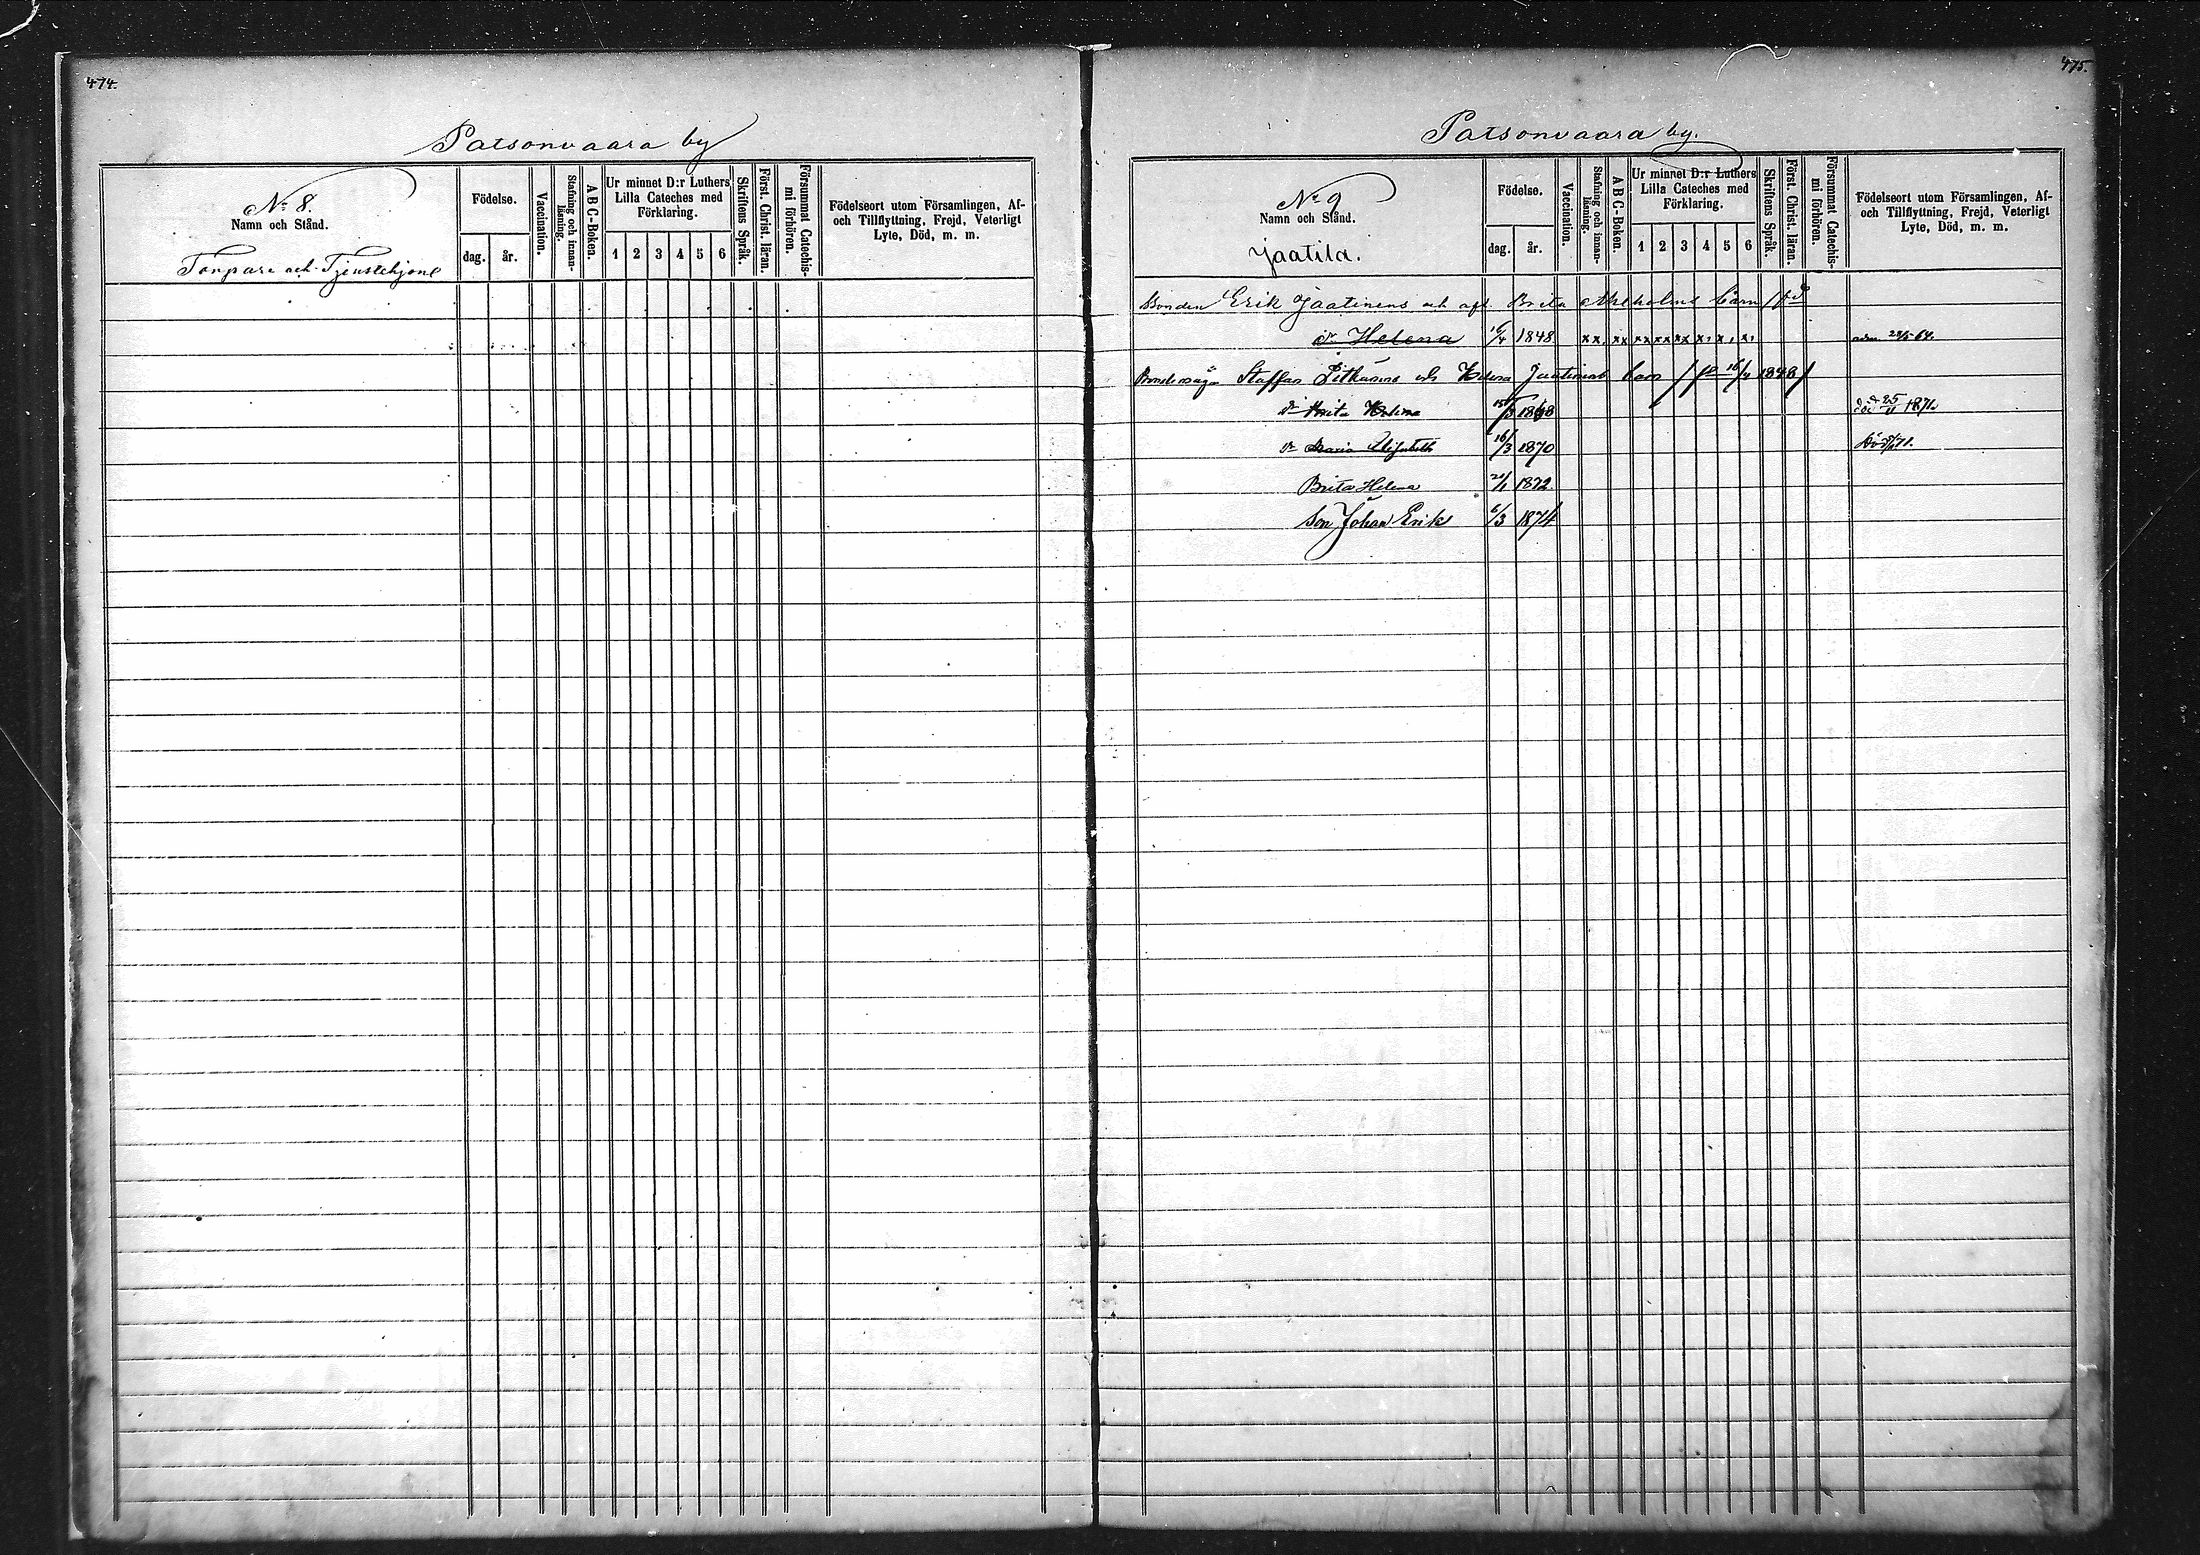 474.
Patsonvaara by
No 8.
Namn och Stånd.
Torpare och Tjenstehjon
Födelse.
dag.
år.
Vaccination.
Stafning och innanläsning.
A B C-Boken.
Ur minnet D:r Luthers
Lilla Cateches med
Förklaring.
1 2 3 4 5 6
Skriftens Språk.
Först. Christ. läran.
Försummat Catechismi förhören.
Födelseort utom Församlingen, Af-
och Tillflyttning, Frejd, Veterligt
Lyte, Död, m. m.
475.
Patsonvaara by.
No 9
Namn och Stånd.
Jaatila.
Födelse.
dag.
år.
Vaccination.
Stafning och innanläsning.
A B C-Boken.
Ur minnet D:r Luthers
Lilla Cateches med
Förklaring.
1 2 3 4 5 6
Skriftens Språk.
Först. Christ. läran.
Försummat Catechismi förhören.
Födelseort utom Församlingen, Af-
och Tillflyttning, Frejd, Veterligt
Lyte, Död, m. m.
Bonden Erik Jaatinens och Brita barn
dr Helena 16/4 1848 xx xx xx xx xx x x x 64.
Staffan och Helena barn 16/4 1848
dr Brita Helena 1868 25/11 1871.
dr Maria Elisabeth 16/3 1870 71.
Brita Helena 1872.
Son Johan Erik 6/3 1874